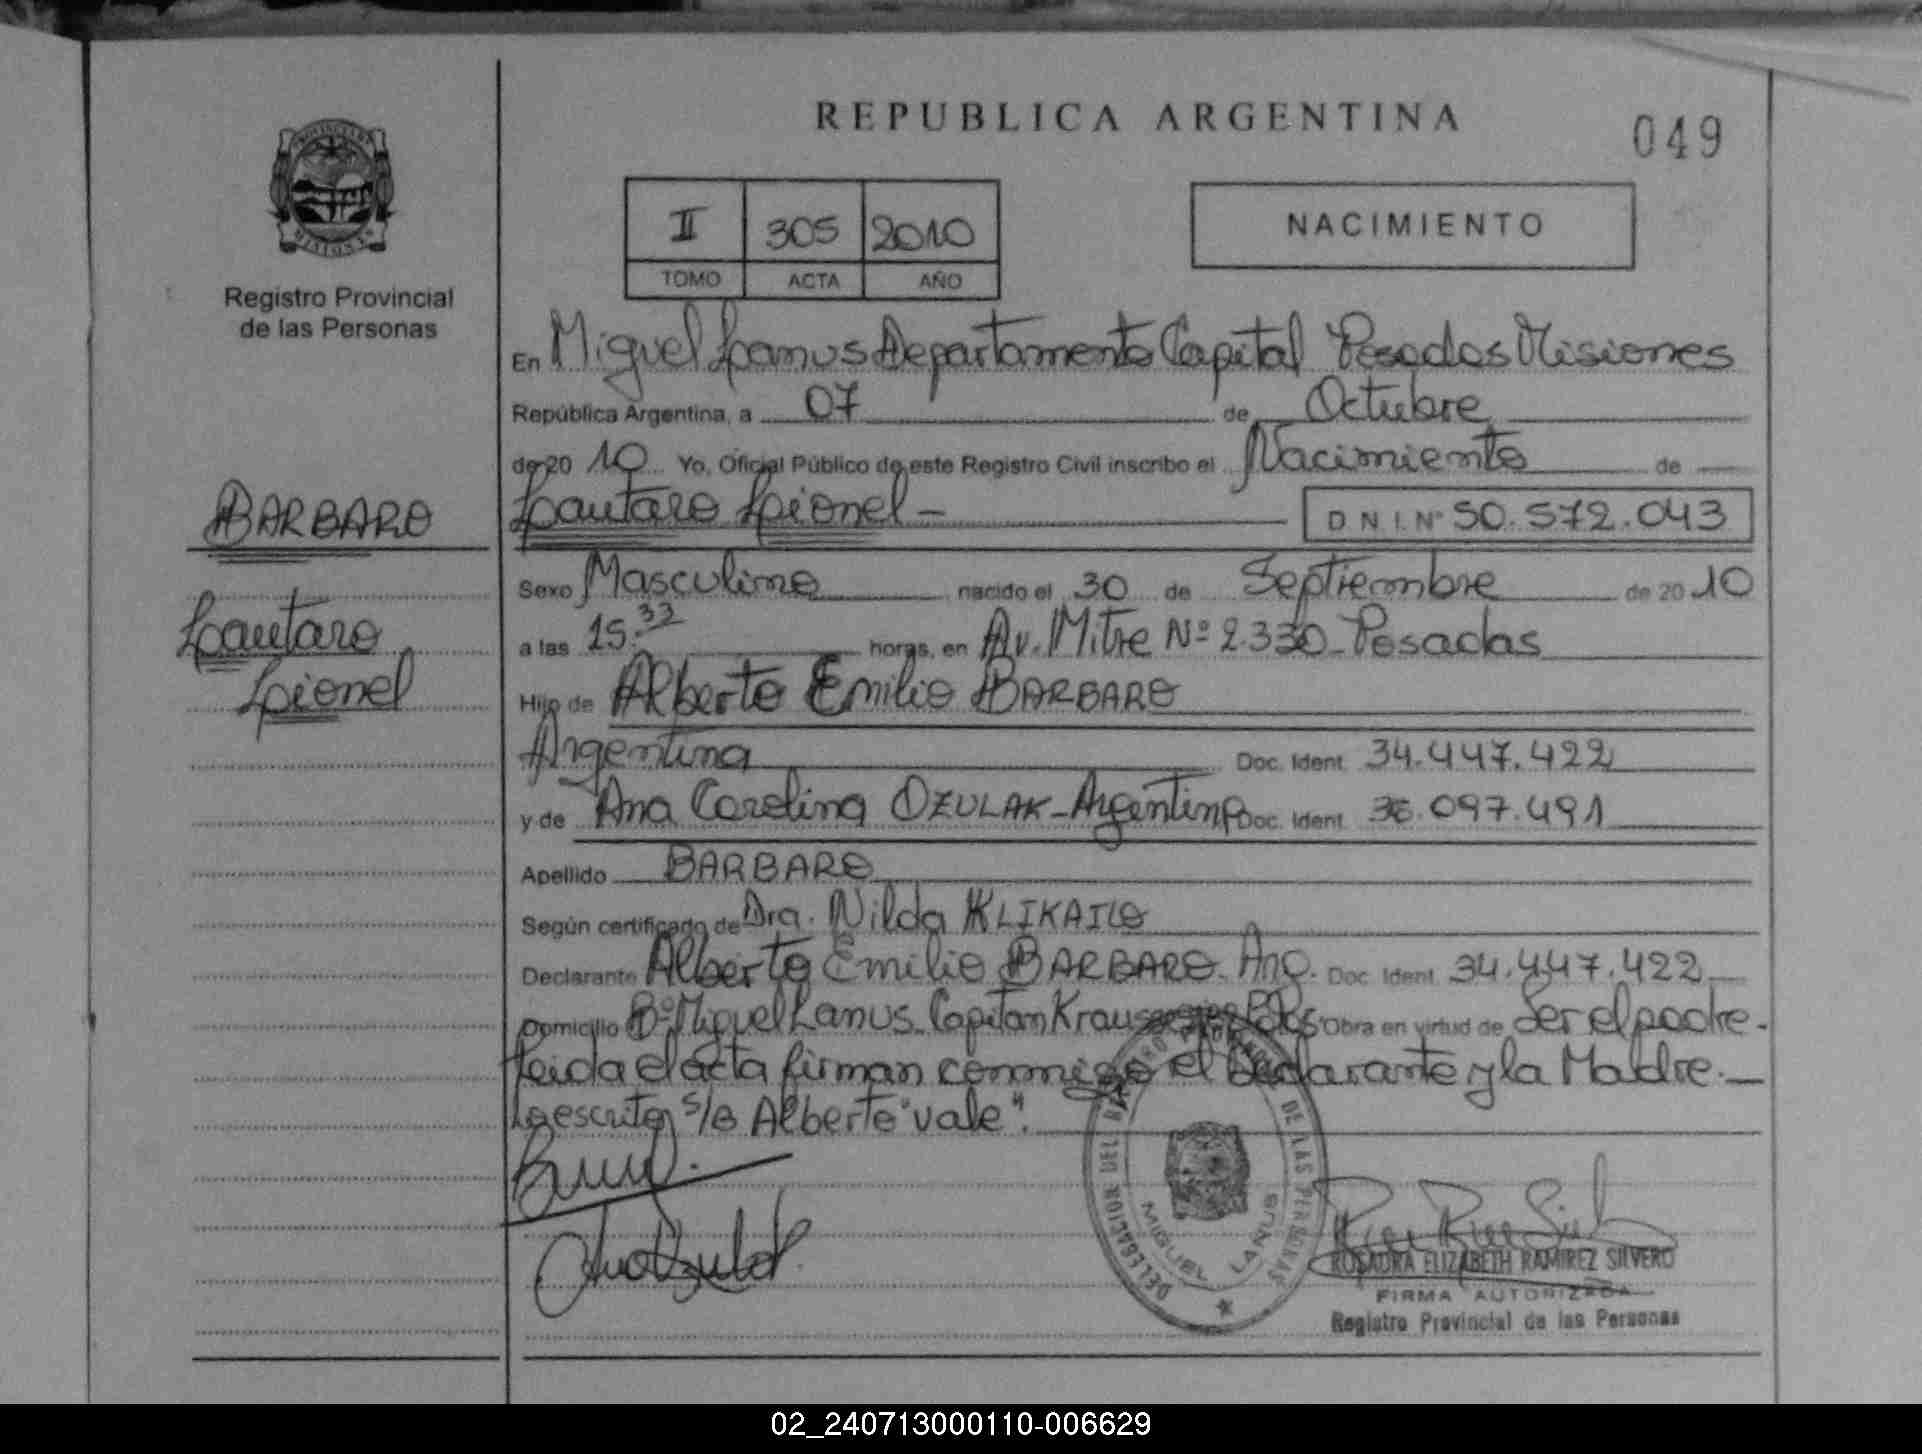 REPUBLICA ARGENTINA
049
II 305 2010
TOMO ACTA AÑO
NACIMIENTO
Registro Provincial
de las Personas
BARBARO
Lautaro
Lionel
En Miguel Lanus Departamento Capital Posadas Misiones
República Argentina, a 07 de Octubre
de 20 10 Yo, Oficial Público de este Registro Civil inscribo el Nacimiento de
Lautaro Lionel - D N I. Nº 50.572.043
Sexo Masculino nacido el 30 de Septiembre de 20 10
a las 15.33 horas, en Av. Mitre Nº 2.330 - Posadas
Hijo de Alberto Emilio BARBARO
Argentina Doc. Ident. 34.447.422
y de Ana Carolina OZULAK - Argentina Doc. Ident. 36.097.491
Apellido BARBARO
Según certificado de Dra. Nilda KLIKAILO
Declarante Alberto Emilio BARBARO Arg. Doc. Ident. 34.447.422
Domicilio Bº Miguel Lanus Capitan Obra en virtud de Ser el padre -
Leida el acta firman conmigo el declarante y la Madre. -
Lo escrito s/b Alberto "vale".
DELEGACION DEL REGISTRO PROVINCIAL DE LAS PERSONAS
MIGUEL LANUS
ROSAURA ELIZABETH RAMIREZ SILVERO
FIRMA AUTORIZADA
Registro Provincial de las Personas
02_240713000110-006629